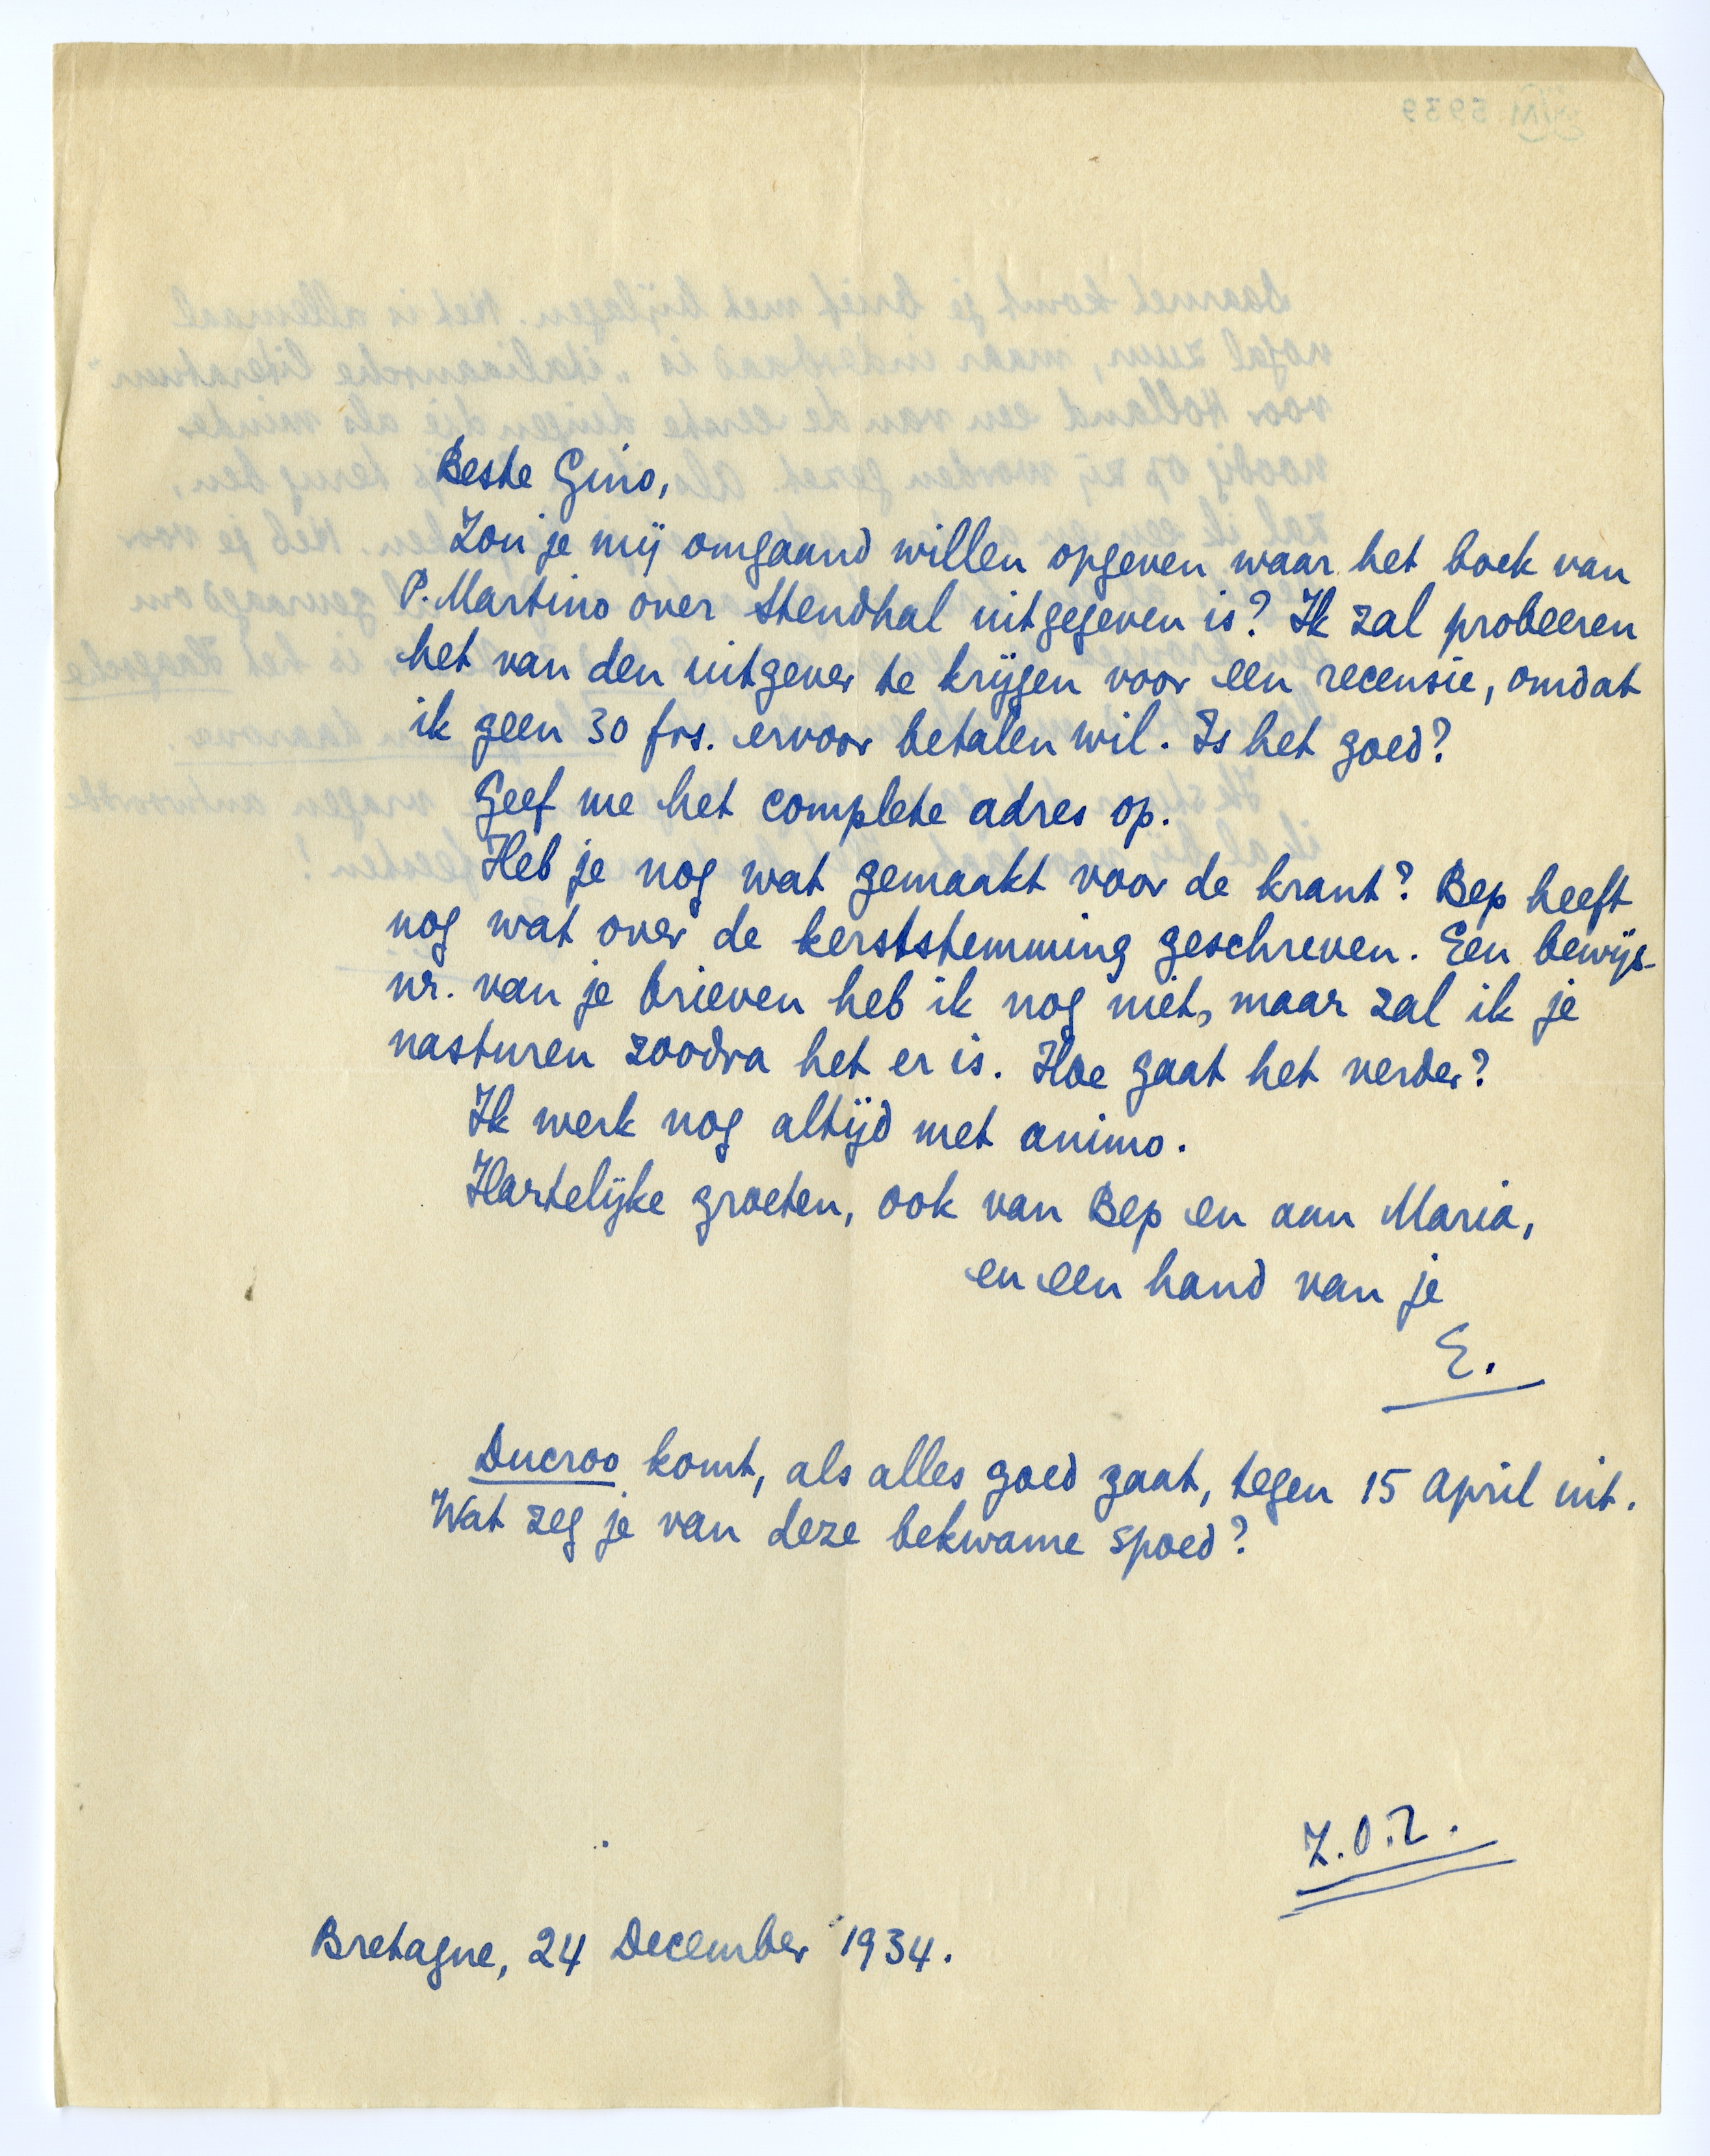 Beste Gino,
Zou je mij omgaand willen opgeven waar het boek van
P. Martino over Stendhal uitgegeven is? Ik zal probeeren
het van den uitgever te krijgen voor een recensie, omdat
ik geen 30 frs. ervoor betalen wil. Is het goed?
Geef me het complete adres op.
Heb je nog wat gemaakt voor de krant? Bep heeft
nog wat over de kerststemming geschreven. Een bewijs-
nr. van je brieven heb ik nog niet, maar zal ik je
nasturen zoodra het er is. Hoe gaat het verder?
Ik werk nog altijd met animo.
Hartelijke groeten, ook van Bep en aan Maria,
en een hand van je
E.
Ducroo komt, als alles goed gaat, tegen 15 April uit.
Wat zeg je van deze bekwame spoed?
Z.O.Z.
Bretagne, 24 December 1934.